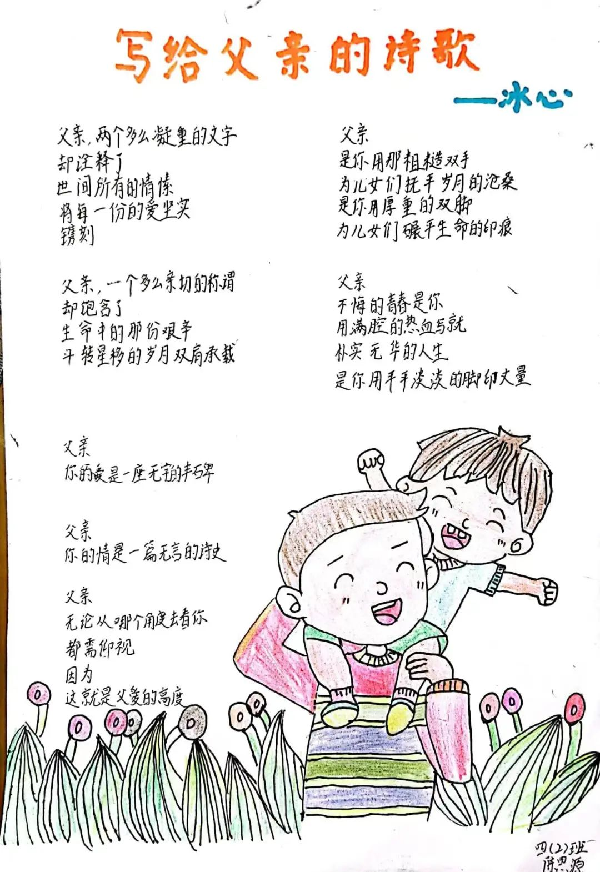 写给父亲的诗歌
——冰心
父亲，两个多么凝重的文字
却诠释了
世间所有的情愫
将每一份的爱坚实
镌刻
父亲，一个多么亲切的称谓
却饱含了
生命中的那份艰辛
斗转星移的岁月双肩承载
父亲
你的爱是一座无字的丰碑
父亲
你的情是一篇无言的诗史
父亲
无论从哪个角度去看你
都需仰视
因为
这就是父爱的高度
父亲
是你用那粗糙双手
为儿女们抚平岁月的沧桑
是你用厚重的双脚
为儿女们碾平生命的印痕
父亲
不悔的青春是你
用满腔的热血与就
朴实无华的人生
是你用平平淡淡的脚印丈量
四(2)班
陈思源